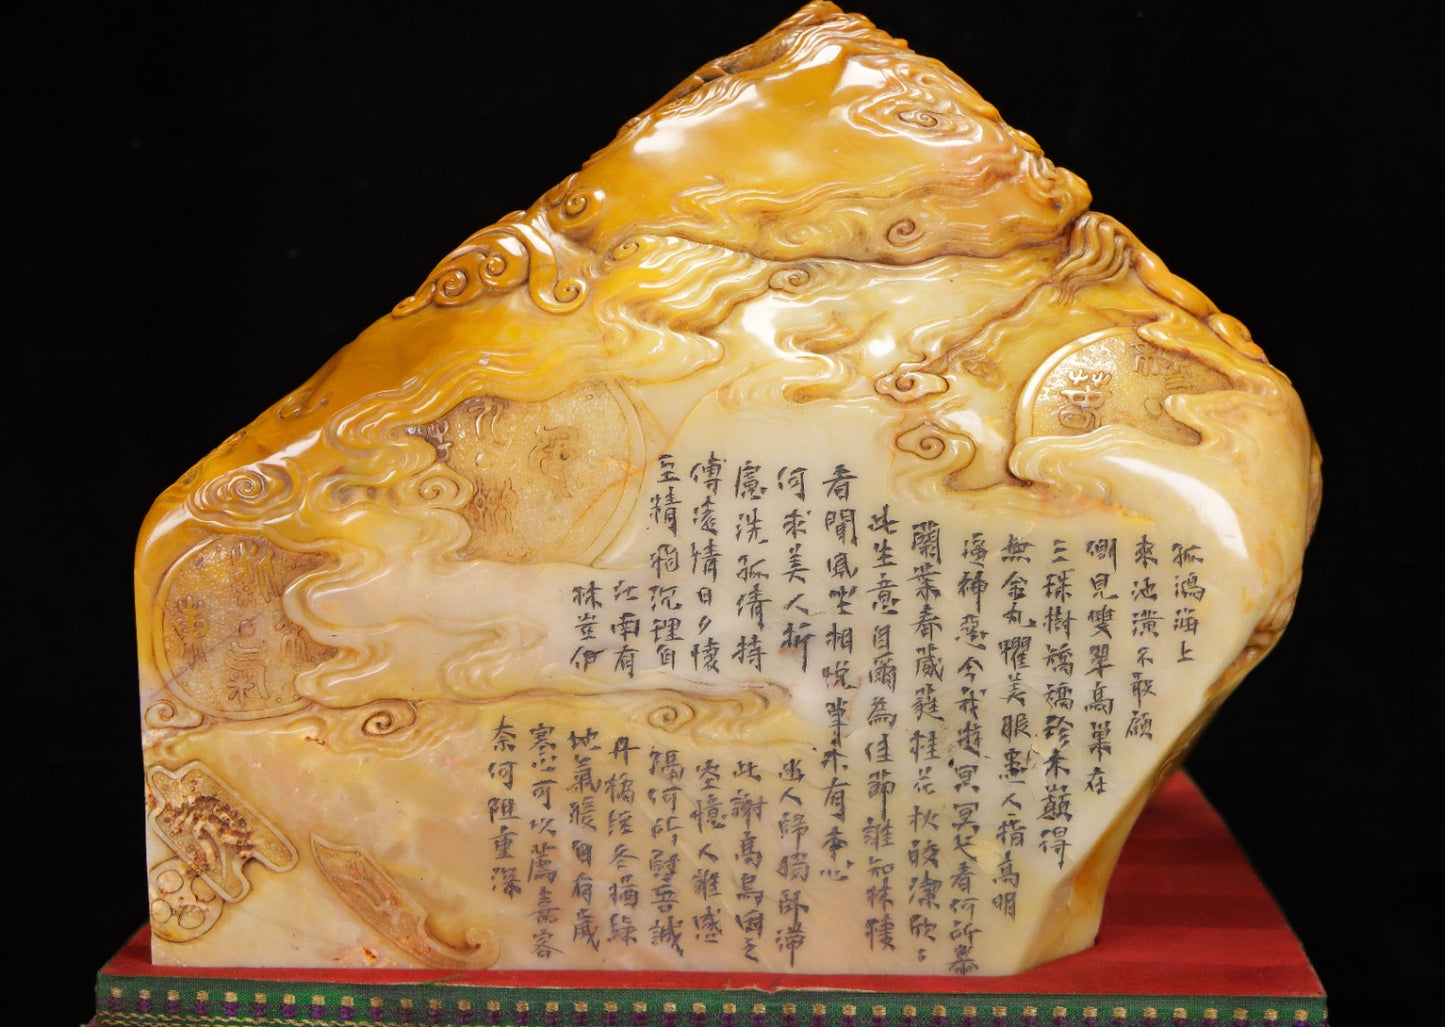 孤鴻海上
來池潢不敢顧
側見雙翠鳥巢在
三珠樹矯矯珍木巔得
無金丸懼美服患人指高明
逼神惡今我遊冥冥弋者何所慕
蘭葉春葳蕤桂花秋皎潔欣〻
此生意自爾為佳節誰知林棲
者聞風坐相悅草木有本心
何求美人折幽人歸獨臥滯
慮洗孤清持此謝高鳥因之
傳遠情日夕懷空憶人誰感
至精飛沉理自隔何所慰吾誠
江南有丹橘經冬猶綠
林豈伊地氣暖自有歲
寒心可以薦嘉客
奈何阻重深